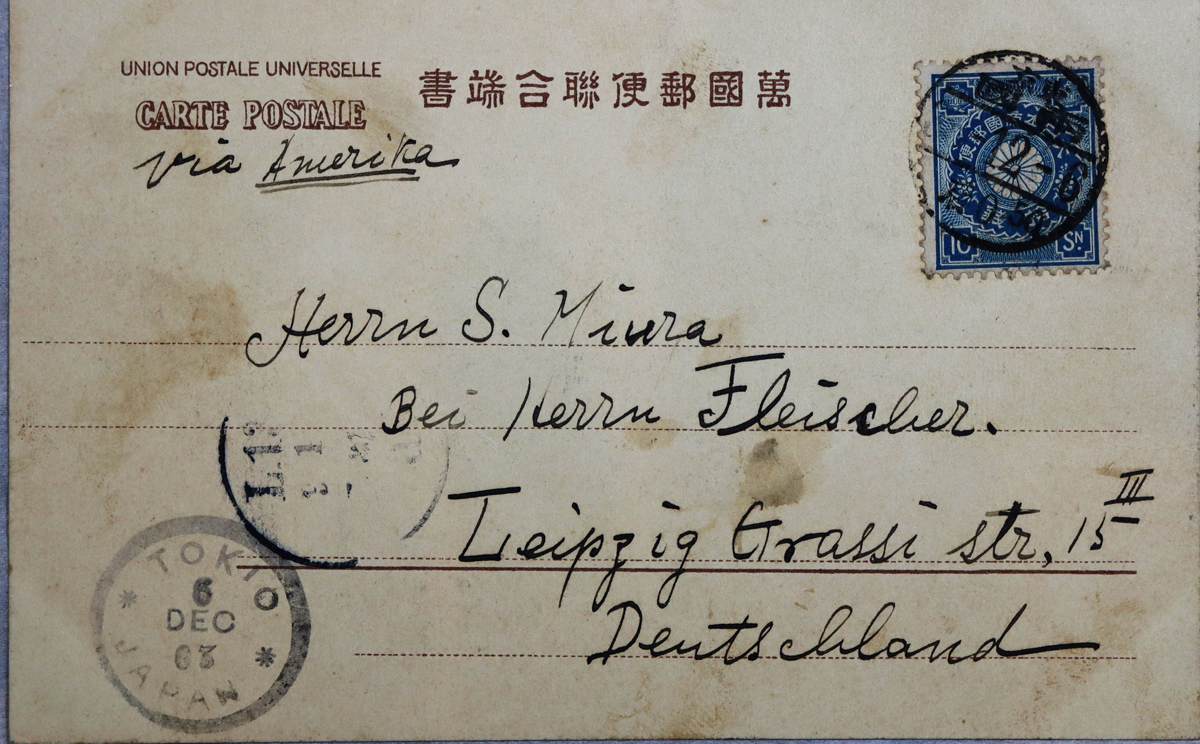 UNION POSTALE UNIVERSELLE
CARTE POSTALE
書端合聯便郵國萬
via Amerika
12-6
10 SN
Herrn S. Miura
Bei Herrn Fleischer.
Leipzig Grassi str, 15 III
Deutschland
TOKIO
6
DEC
03
JAPAN